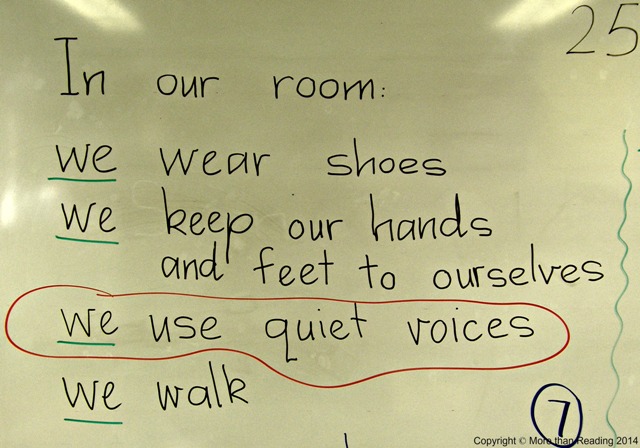 25
In our room:
we wear shoes
we keep our hands
and feet to ourselves
we use quiet voices
we walk
7
Copyright © More than Reading 2014